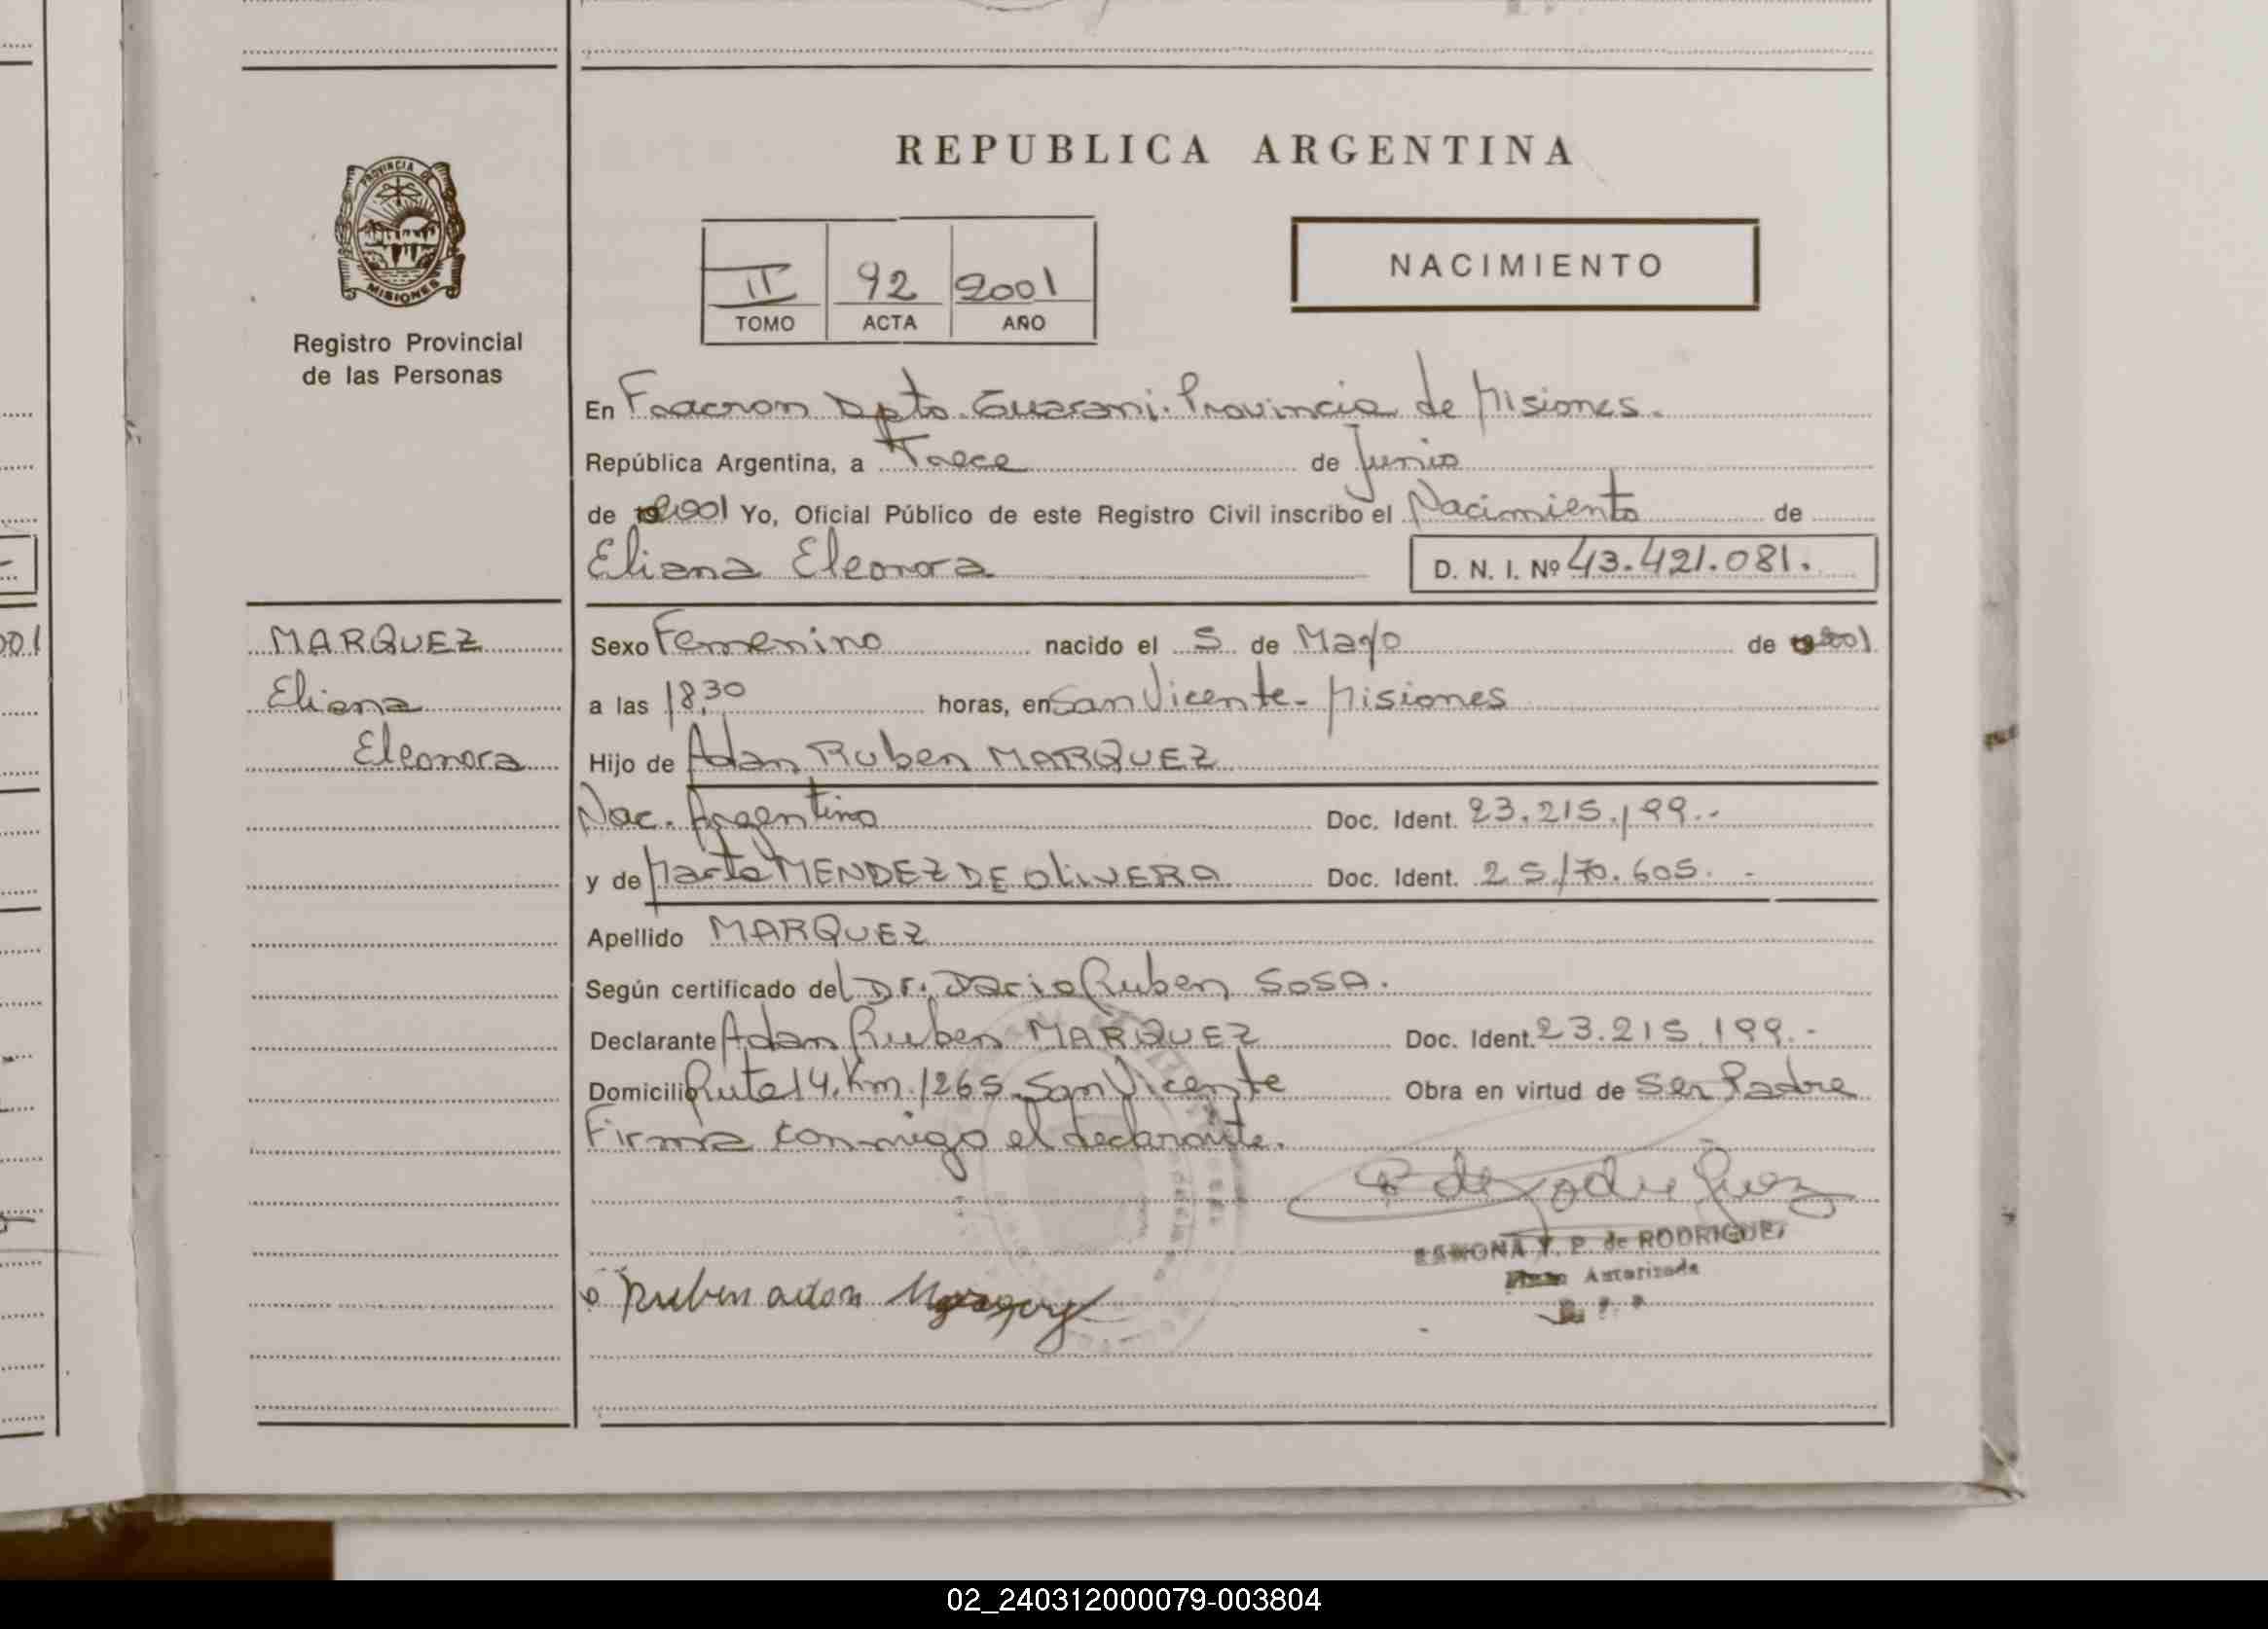 REPUBLICA ARGENTINA
PROVINCIA DE
MISIONES
Registro Provincial
de las Personas
II 92 2001
TOMO ACTA AÑO
NACIMIENTO
En Fracron Dpto. Guarani. Provincia de Misiones.
República Argentina, a Trece de Junio
de 2001 Yo, Oficial Público de este Registro Civil inscribo el Nacimiento de
Eliana Eleonora D. N. I. Nº 43.421.081.
MARQUEZ
Eliana
Eleonora
Sexo Femenino nacido el 5 de Mayo de 2001
a las 18,30 horas, en San Vicente - Misiones
Hijo de Adan Ruben MARQUEZ
Nac. Argentino Doc. Ident. 23.215.199.-
y de Marta MENDEZ DE OLIVERA Doc. Ident. 25.170.605. -
Apellido MARQUEZ
Según certificado del Dr. Dario Ruben SOSA.
Declarante Adan Ruben MARQUEZ Doc. Ident. 23.215.199.-
Domicilio Ruta 14, Km. 1265 San Vicente Obra en virtud de Ser Padre
Firma conmigo el declarante.
RAMONA Y. P. de RODRIGUEZ
Firma Autorizada
Ruben adan
02_240312000079-003804